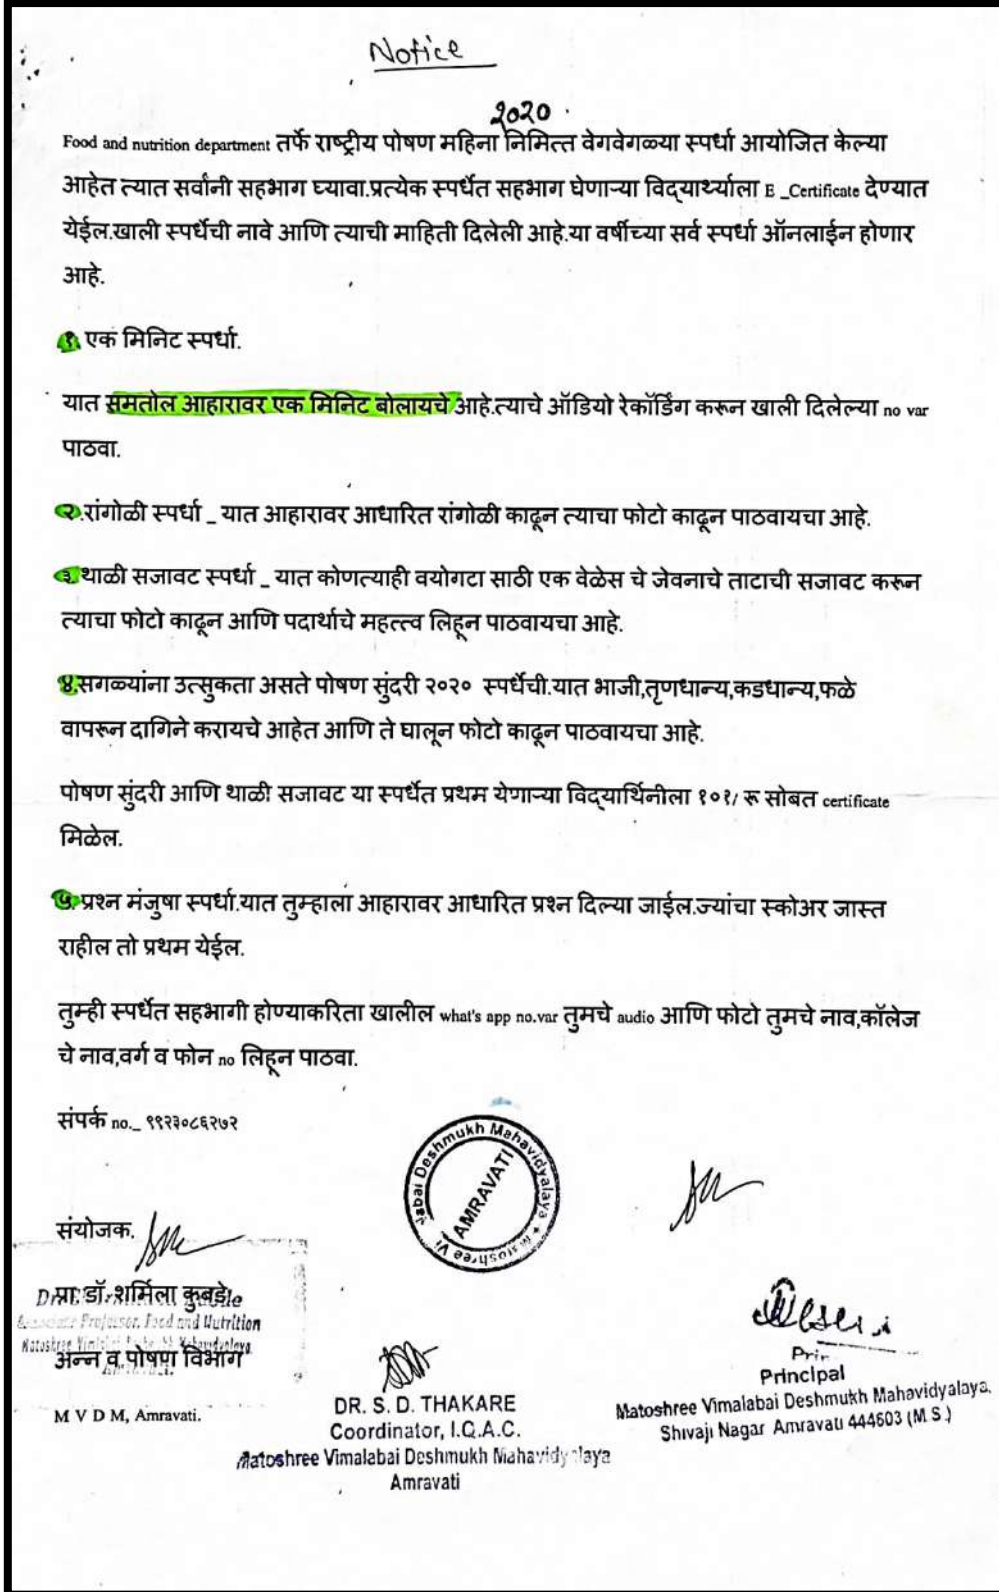 Notice
2020
Food and nutrition department तर्फे राष्ट्रीय पोषण महिना निमित्त वेगवेगळ्या स्पर्धा आयोजित केल्या
आहेत त्यात सर्वांनी सहभाग घ्यावा.प्रत्येक स्पर्धेत सहभाग घेणाऱ्या विद्यार्थ्याला E _Certificate देण्यात
येईल.खाली स्पर्धेची नावे आणि त्याची माहिती दिलेली आहे.या वर्षीच्या सर्व स्पर्धा ऑनलाईन होणार
आहे.
१. एक मिनिट स्पर्धा.
यात समतोल आहारावर एक मिनिट बोलायचे आहे.त्याचे ऑडियो रेकॉर्डिंग करून खाली दिलेल्या no var
पाठवा.
२.रांगोळी स्पर्धा _ यात आहारावर आधारित रांगोळी काढून त्याचा फोटो काढून पाठवायचा आहे.
३.थाळी सजावट स्पर्धा _ यात कोणत्याही वयोगटा साठी एक वेळेस चे जेवनाचे ताटाची सजावट करून
त्याचा फोटो काढून आणि पदार्थाचे महत्त्व लिहून पाठवायचा आहे.
४.सगळ्यांना उत्सुकता असते पोषण सुंदरी २०२० स्पर्धेची.यात भाजी,तृणधान्य,कडधान्य,फळे
वापरून दागिने करायचे आहेत आणि ते घालून फोटो काढून पाठवायचा आहे.
पोषण सुंदरी आणि थाळी सजावट या स्पर्धेत प्रथम येणाऱ्या विद्यार्थिनीला १०१/ रू सोबत certificate
मिळेल.
५. प्रश्न मंजुषा स्पर्धा.यात तुम्हाला आहारावर आधारित प्रश्न दिल्या जाईल.ज्यांचा स्कोअर जास्त
राहील तो प्रथम येईल.
तुम्ही स्पर्धेत सहभागी होण्याकरिता खालील what's app no.var तुमचे audio आणि फोटो तुमचे नाव,कॉलेज
चे नाव,वर्ग व फोन no लिहून पाठवा.
संपर्क no._ ९९२३०८६२७२
Matoshree Vi labai Deshmukh Mahavidyalaya
AMRAVATI
संयोजक.
प्रा. डॉ. शर्मिला कुबडे
Associate Professor, Food and Nutrition
अन्न व पोषण विभाग
M V D M, Amravati.
DR. S. D. THAKARE
Coordinator, I.Q.A.C.
Matoshree Vimalabai Deshmukh Mahavidyalaya
Amravati
Prin
Principal
Matoshree Vimalabai Deshmukh Mahavidyalaya,
Shivaji Nagar Amravati 444603 (M.S.)